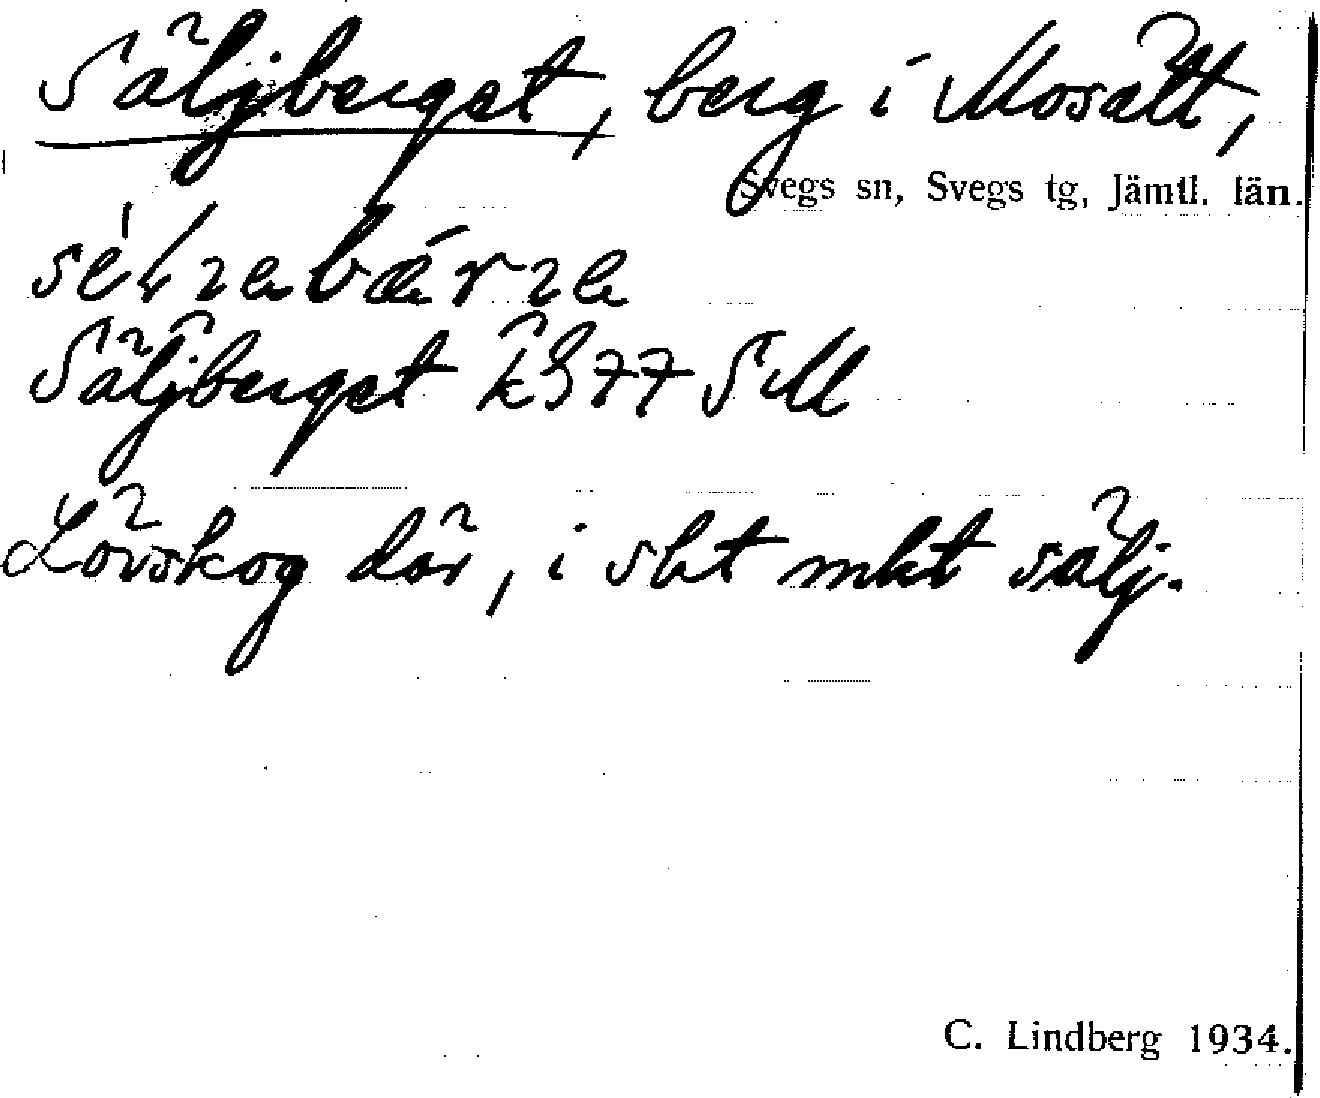 Säljberget, berg i Mosätt,
Svegs sn, Svegs tg, Jämtl. län.
Säljberget
Lövskog där, i sht mkt sälj.
C. Lindberg 1934.